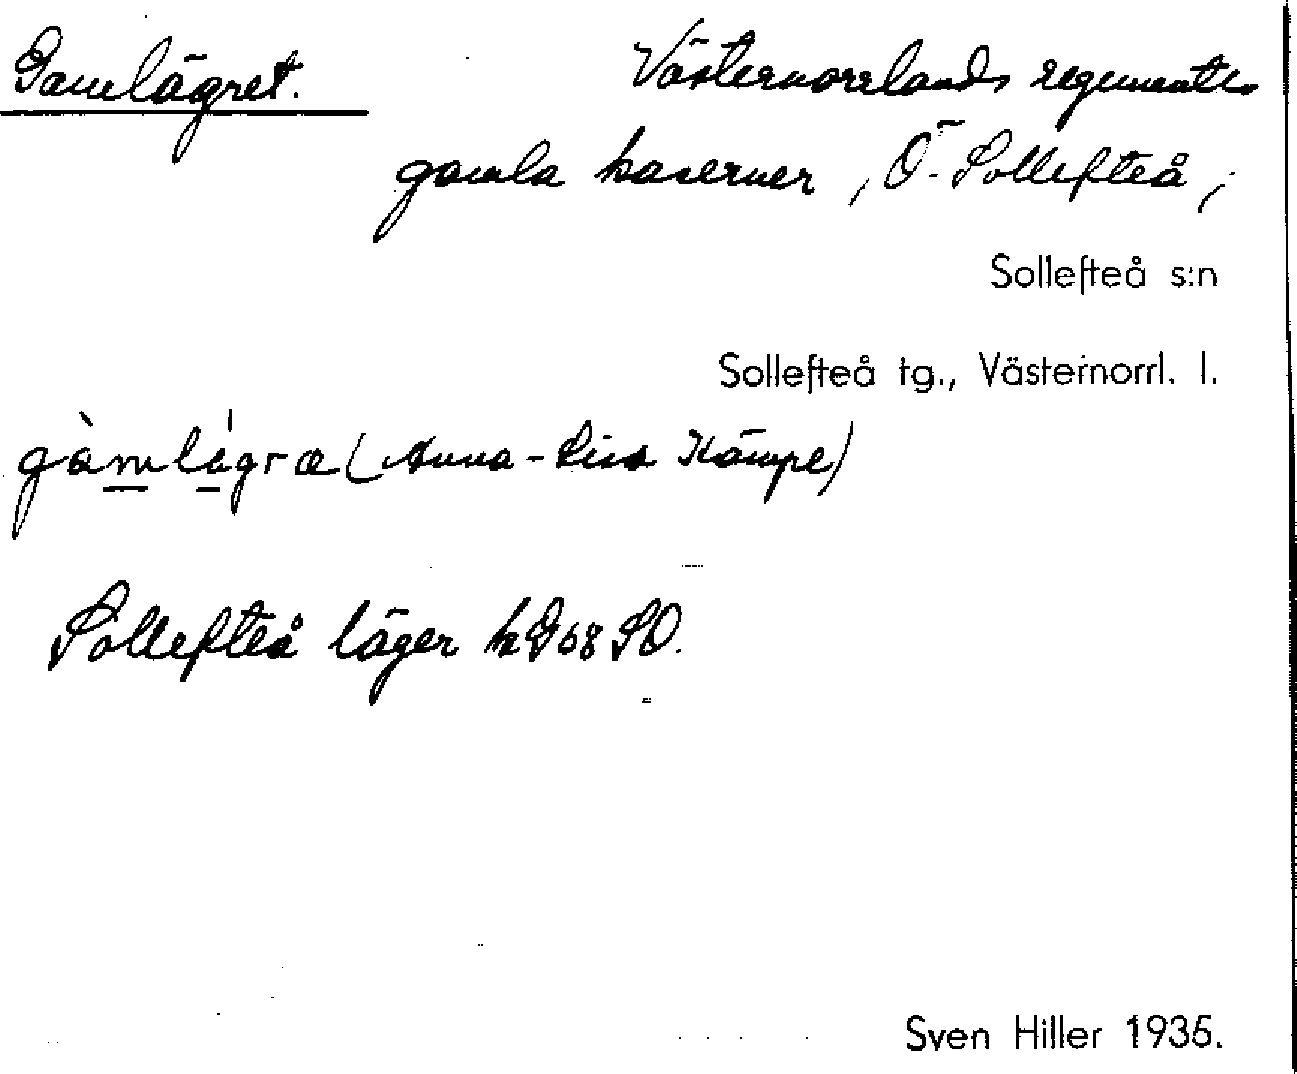 Gamlägret.
Västernorrlands regementes
gamla kaserner, Ö. Sollefteå,
Sollefteå s:n
Sollefteå tg., Västernorrl. l.
gàmlágræ (Anna-Lisa Kämpe)
Sollefteå läger
Sven Hiller 1935.